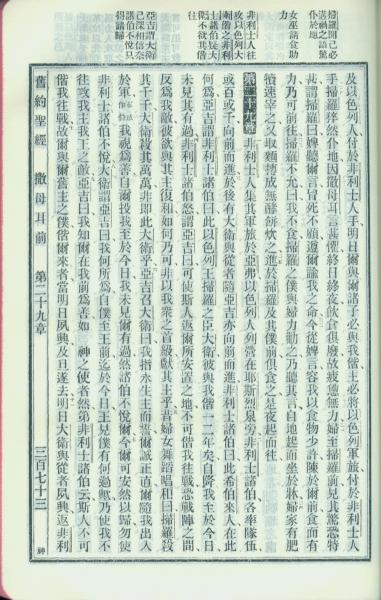 掃羅聞已必
喪滅之語驚
仆於地
女巫請食助
力
非利士人往
攻以色列大
衛偕之非利
士諸伯疑大
衛不欲其偕
亞吉謂大衛
己深相信奈
諸伯不悅只
得請歸
及以色列人付於非利士人手明日爾與爾諸子必與我偕主必將以色列軍旅付於非利士人
手掃羅猝然仆地因撒母耳言甚懼終日終夜飲食俱廢故疲憊無力婦至掃羅前見其驚恐特
甚謂掃羅曰婢聽爾言冒死不顧遵爾諭我之命今從婢言容我以食物少許陳於爾前食而有
力乃可前往掃羅不允曰我不食掃羅之僕與婦力勸之乃聽其言自地起而坐於牀婦家有肥
犢速宰之又取麵摶成無酵餅炊之進於掃羅及其僕前俱食之是夜起而往
第二十九章 非利士人集其軍旅於亞弗以色列人列營在耶斯烈泉旁非利士諸伯各率隊伍
或百或千向前而進於後有大衛與從者隨亞吉亦向前而進非利士諸伯曰此希伯來人在此
何為亞吉謂非利士諸伯曰此以色列王掃羅之臣大衛彼與我偕一二年矣自降我至於今日
未見其有過非利士諸伯怒謂亞吉曰可使斯人返爾所安置之地不可偕我往戰恐戰陣之間
反為我敵彼欲與其主復和如何乃可非以我衆之首級獻其主乎昔婦女舞蹈唱和曰掃羅殺
其千千大衛殺其萬萬非即此大衛乎亞吉召大衛曰我指永生主而誓爾誠正直爾隨我出入
於軍我視為善自爾投我至於今日我未見爾有過然諸伯不悅爾今爾可安然以歸勿使
非利士諸伯不悅大衛謂亞吉曰我何所為自僕至王前迄於今日王見僕有何過歟乃使我不
往攻我主我王之敵亞吉曰我知爾在我前為善如 神之使者然第非利士諸伯云斯人不可
偕我往戰故爾與爾舊主之僕偕爾來者當明日夙興及旦遂去明日大衛與從者夙興返非利
舊約聖經 撒母耳前 第二十九章 三百七十三 神